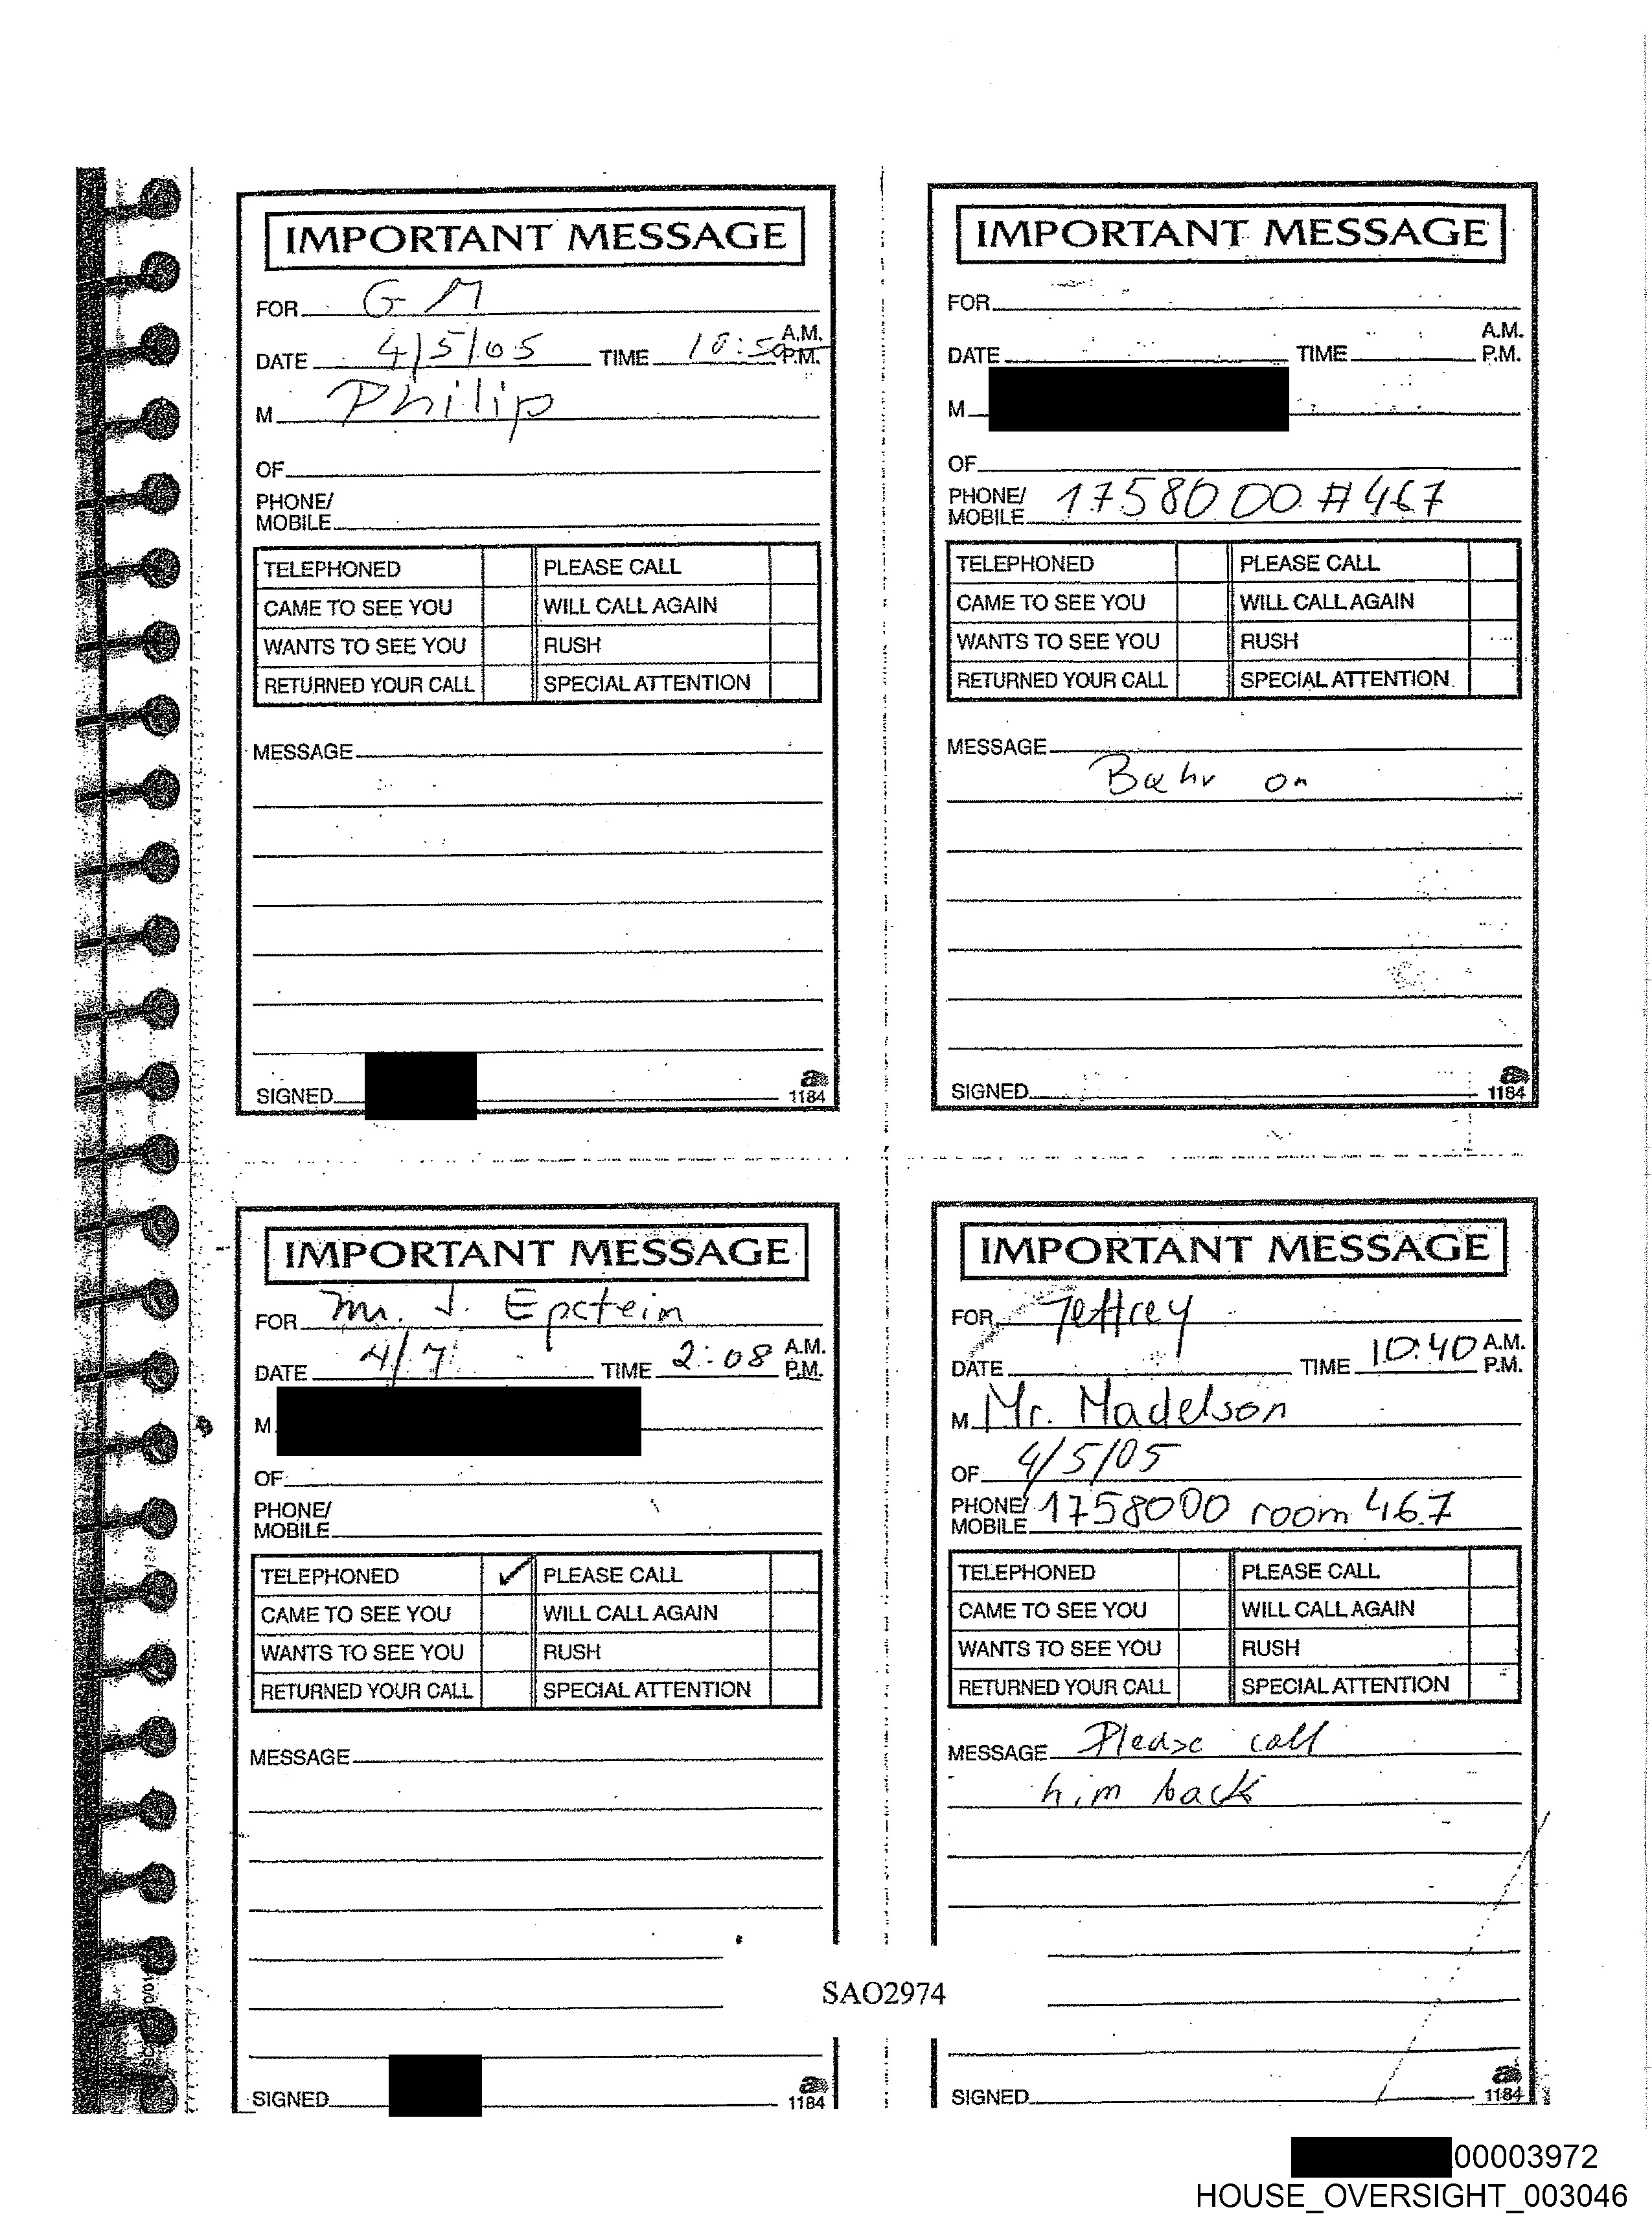 IMPORTANT MESSAGE
FOR G M
DATE 4/5/05 TIME 10:50 A.M. P.M.
M Philip
OF
PHONE/
MOBILE
TELEPHONED PLEASE CALL
CAME TO SEE YOU WILL CALL AGAIN
WANTS TO SEE YOU RUSH
RETURNED YOUR CALL SPECIAL ATTENTION
MESSAGE
SIGNED
1184
IMPORTANT MESSAGE
FOR
DATE TIME A.M. P.M.
M
OF
PHONE/
MOBILE 1758000 #467
TELEPHONED PLEASE CALL
CAME TO SEE YOU WILL CALL AGAIN
WANTS TO SEE YOU RUSH
RETURNED YOUR CALL SPECIAL ATTENTION
MESSAGE
on
SIGNED
1184
IMPORTANT MESSAGE
FOR Mr. J. Epctein
DATE 4/7 TIME 2:08 A.M. P.M.
M
OF
PHONE/
MOBILE
TELEPHONED ✓ PLEASE CALL
CAME TO SEE YOU WILL CALL AGAIN
WANTS TO SEE YOU RUSH
RETURNED YOUR CALL SPECIAL ATTENTION
MESSAGE
SIGNED
1184
IMPORTANT MESSAGE
FOR Jeffrey
DATE TIME 10:40 A.M. P.M.
M Mr. Madelson
OF 4/5/05
PHONE/
MOBILE 1758000 room 467
TELEPHONED PLEASE CALL
CAME TO SEE YOU WILL CALL AGAIN
WANTS TO SEE YOU RUSH
RETURNED YOUR CALL SPECIAL ATTENTION
MESSAGE Please call
him back
SIGNED
1184
SAO2974
00003972
HOUSE_OVERSIGHT_003046